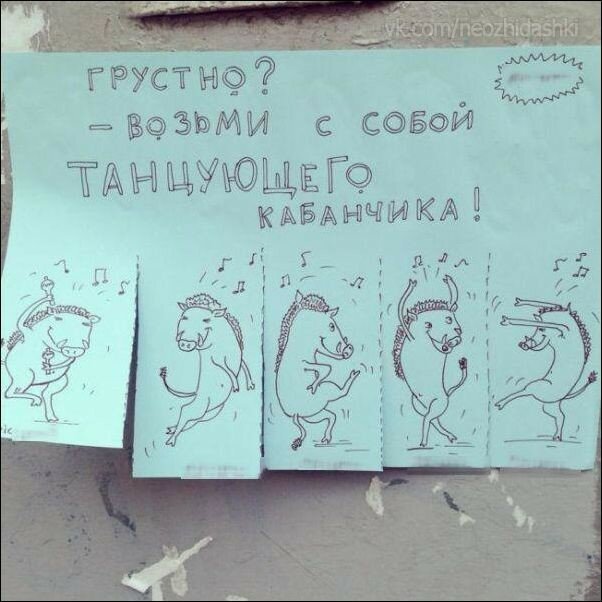 vk.com/neozhidashki
ГРУСТНО?
– ВОЗЬМИ С СОБОЙ
ТАНЦУЮЩЕГО
КАБАНЧИКА!